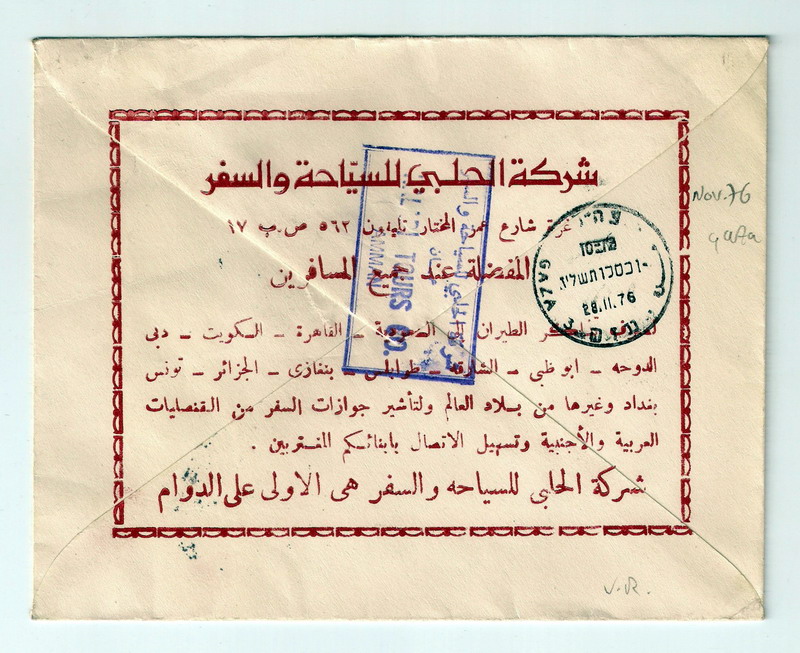 شركة الحلبي للسيّاحة والسفر
غزة شارع عمر المختار تليفون ٥٦٢ ص.ب ١٧
المفضلة عند جميع المسافرين
تذاكر الطيران الى السعودية – القاهرة – الكويت – دبى
الدوحه – ابو ظبى – الشارقه – طرابلس – بنغازى – الجزائر – تونس
بغداد وغيرها من بلاد العالم ولتأشير جوازات السفر من القنصليات
العربية والأجنبية وتسهيل الاتصال بابنائكم المغتربين .
شركة الحلبى للسياحه والسفر هى الاولى على الدوام
TOURS CO.
AMMAN
عمان
GAZA
28.11.76
Nov. 76
gaza
V.R.